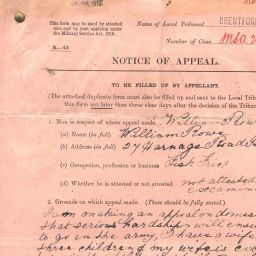 This form may be used by attested
men and by men applying under
the Military Service Act, 1916.
R.—43
Name of Local Tribunal BRENTFORD
Number of Case
NOTICE OF APPEAL.
TO BE FILLED UP BY APPELLANT.
(The attached duplicate form must also be filled up and sent to the Local Tribu
this form not later than three clear days after the decision of the Tribun
1. Man in respect of whom appeal made William Rowe
(a) Name (in full) William Rowe
(b) Address (in full) 27 Harnage Road
(c) Occupation, profession or business Fish Fri
(d) Whether he is attested or not attested not attested
2. Grounds on which appeal made. (These should be fully stated.)
I am making an appeal on domes
that serious hardships will ensu
to go in the army, I have a wife
three children my wife is